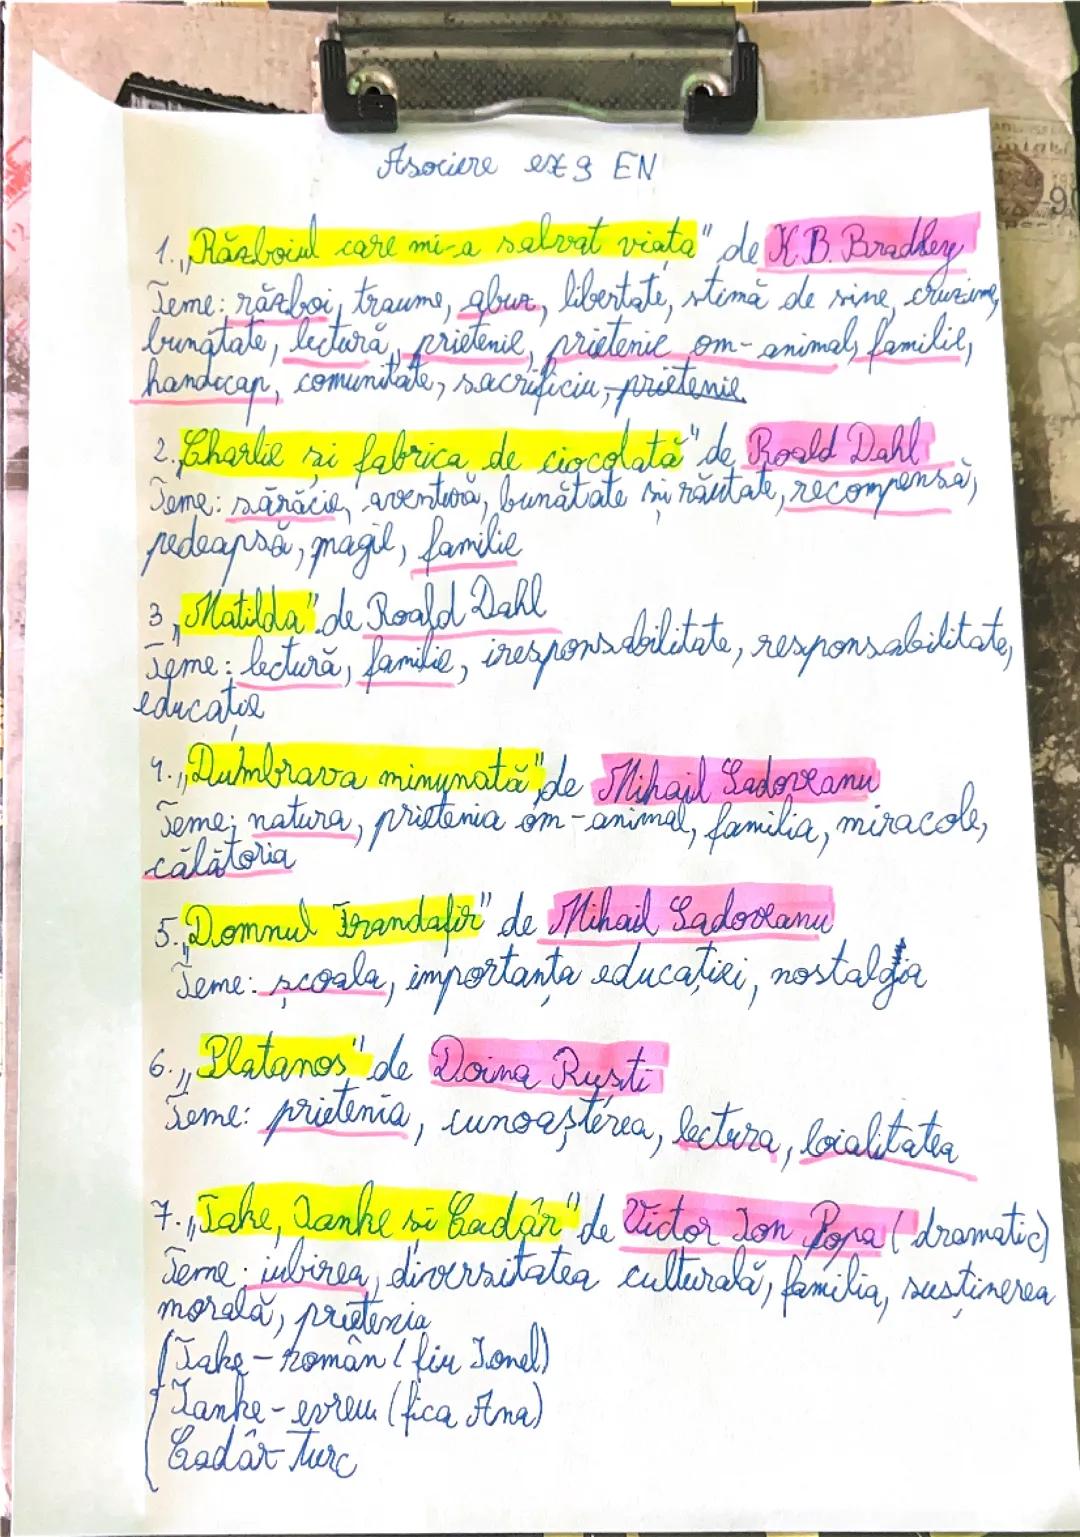 Asociere ex 9 EN
1. „Războiul care mi-a salvat viața" de K.B. Bradley
Teme: război, traume, abuz, libertate, stimă de sine, cruzime,
bunătate, lectură, prietenie, prietenie om-animal, familie,
handicap, comunitate, sacrificiu, prietenie
2. „Charlie și fabrica de ciocolată" de Roald Dahl
Teme: sărăcie, aventură, bunătate și răutate, recompensă,
pedeapsă, magie, familie
3 „Matilda" de Roald Dahl
Teme: lectură, familie, iresponsabilitate, responsabilitate,
educație
4. „Dumbrava minunată", de Mihail Sadoveanu
Teme: natura, prietenia om-animal, familia, miracole,
călătoria
5. „Domnul Trandafir" de Mihail Sadoveanu
Teme: școala, importanța educației, nostalgia
6. „Platanos" de Doina Ruști
Teme: prietenia, cunoașterea, lectura, loialitatea
7. „Take, Ianke și Cadâr" de Victor Ion Popa (dramatic)
Teme: iubirea, diversitatea culturală, familia, susținerea
morală, prietenia
Take - român (fiu Ionel)
Ianke - evreu (fica Ana)
Cadâr - turc